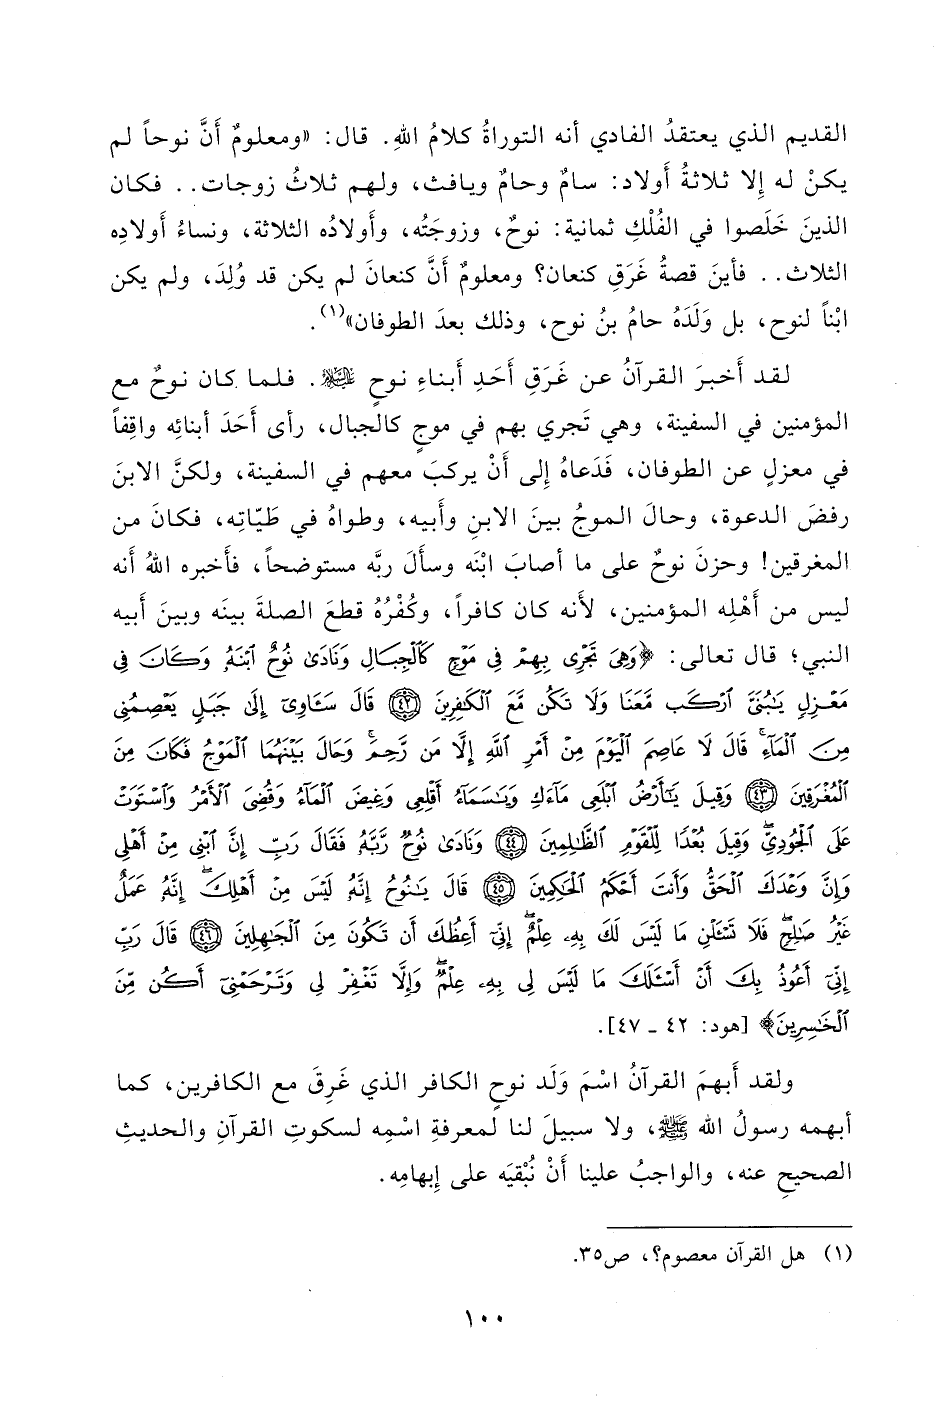 القديم الذي يعتقدُ الفادي أنه التوراةُ كلامُ اللهِ. قال: «ومعلومٌ أَنَّ نوحاً لم
يكنْ له إِلا ثلاثةُ أولاد: سامٌ وحامٌ ويافث، ولهم ثلاثُ زوجات.. فكان
الذينَ خَلَصوا في الفُلْكِ ثمانية: نوحٌ، وزوجَتُه، وأَولادُه الثلاثة، ونساءُ أولادِه
الثلاث.. فأينَ قصةُ غَرَقِ كنعان؟ ومعلومٌ أَنَّ كنعانَ لم يكن قد وُلِدَ، ولم يكن
ابْناً لنوح، بل وَلَدَهُ حامُ بنُ نوح، وذلك بعدَ الطوفان»(١).
لقد أَخبرَ القرآنُ عن غَرَقِ أَحَدِ أَبناءِ نوحٍ عليه السلام. فلما كان نوحٌ مع
المؤمنين في السفينة، وهي تَجري بهم في موجٍ كالجبال، رأى أَحَدَ أبنائِه واقِفاً
في معزلٍ عن الطوفان، فَدَعاهُ إِلى أَنْ يركبَ معهم في السفينة، ولكنَّ الابنَ
رفضَ الدعوة، وحالَ الموجُ بينَ الابنِ وأَبيه، وطواهُ في طَيّاتِه، فكانَ من
المغرقين! وحزنَ نوحٌ على ما أصابَ ابْنَه وسأَلَ ربَّه مستوضحاً، فأَخبره اللهُ أنه
ليس من أَهْلِه المؤمنين، لأنه كان كافراً، وكُفْرُهُ قطعَ الصلةَ بينَه وبينَ أَبيه
النبي؛ قال تعالى: ﴿وَهِىَ تَجْرِى بِهِمْ فِى مَوْجٍ كَٱلْجِبَالِ وَنَادَىٰ نُوحٌ ٱبْنَهُۥ وَكَانَ فِى
مَعْزِلٍ يَٰبُنَىَّ ٱرْكَب مَّعَنَا وَلَا تَكُن مَّعَ ٱلْكَٰفِرِينَ ٤٢ قَالَ سَـَٔاوِىٓ إِلَىٰ جَبَلٍ يَعْصِمُنِى
مِنَ ٱلْمَآءِۚ قَالَ لَا عَاصِمَ ٱلْيَوْمَ مِنْ أَمْرِ ٱللَّهِ إِلَّا مَن رَّحِمَۚ وَحَالَ بَيْنَهُمَا ٱلْمَوْجُ فَكَانَ مِنَ
ٱلْمُغْرَقِينَ ٤٣ وَقِيلَ يَٰٓأَرْضُ ٱبْلَعِى مَآءَكِ وَيَٰسَمَآءُ أَقْلِعِى وَغِيضَ ٱلْمَآءُ وَقُضِىَ ٱلْأَمْرُ وَٱسْتَوَتْ
عَلَى ٱلْجُودِىِّۖ وَقِيلَ بُعْدًا لِّلْقَوْمِ ٱلظَّٰلِمِينَ ٤٤ وَنَادَىٰ نُوحٌ رَّبَّهُۥ فَقَالَ رَبِّ إِنَّ ٱبْنِى مِنْ أَهْلِى
وَإِنَّ وَعْدَكَ ٱلْحَقُّ وَأَنتَ أَحْكَمُ ٱلْحَٰكِمِينَ ٤٥ قَالَ يَٰنُوحُ إِنَّهُۥ لَيْسَ مِنْ أَهْلِكَۖ إِنَّهُۥ عَمَلٌ
غَيْرُ صَٰلِحٍۖ فَلَا تَسْـَٔلْنِ مَا لَيْسَ لَكَ بِهِۦ عِلْمٌۖ إِنِّىٓ أَعِظُكَ أَن تَكُونَ مِنَ ٱلْجَٰهِلِينَ ٤٦ قَالَ رَبِّ
إِنِّىٓ أَعُوذُ بِكَ أَنْ أَسْـَٔلَكَ مَا لَيْسَ لِى بِهِۦ عِلْمٌۖ وَإِلَّا تَغْفِرْ لِى وَتَرْحَمْنِىٓ أَكُن مِّنَ
ٱلْخَٰسِرِينَ﴾ [هود: ٤٢ ـ ٤٧].
ولقد أَبهمَ القرآنُ اسْمَ وَلَد نوحٍ الكافر الذي غَرِقَ مع الكافرين، كما
أبهمه رسولُ الله ﷺ، ولا سبيلَ لنا لمعرفةِ اسْمِه لسكوتِ القرآنِ والحديثِ
الصحيحِ عنه، والواجبُ علينا أَنْ نُبْقيَه على إِبهامِه.
(١) هل القرآن معصوم؟، ص٣٥.
١٠٠